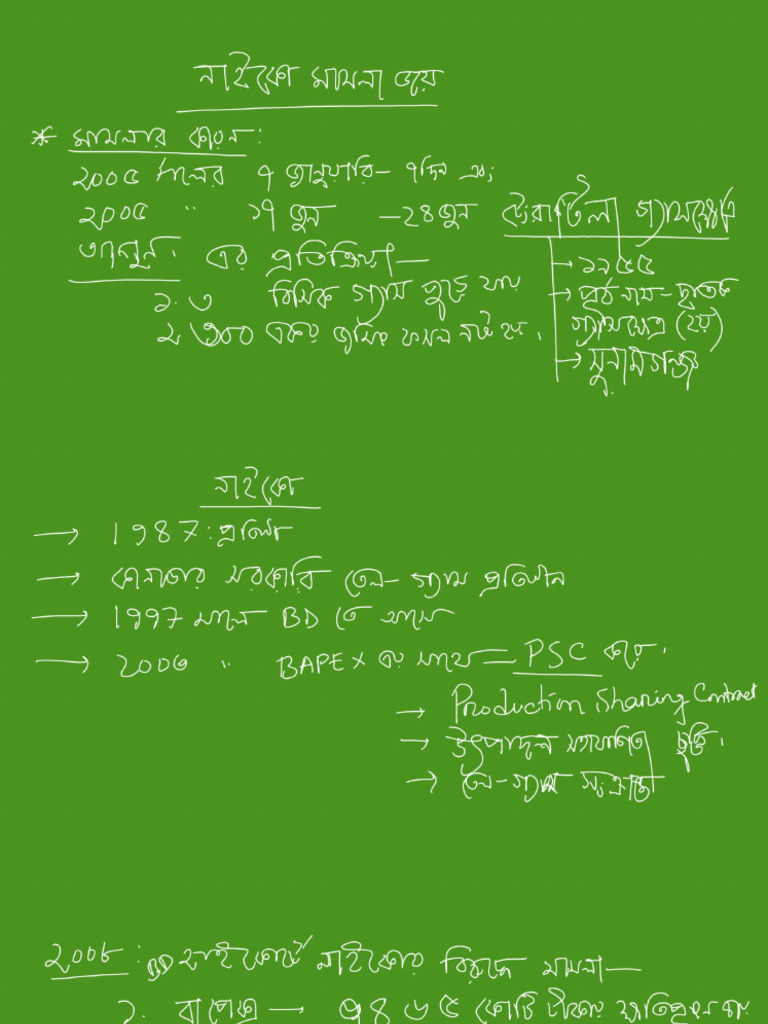 নাইকো মামলা জয়
* মামলার কারন :
২০০৫ সালের ৭ জানুয়ারি – ৭দিন এবং
২০০৫ " ১৭ জুন – ২৪ জুন
টেংরাটিলা গ্যাসক্ষেত্র
আগুন। এর প্রতিক্রিয়া —
→ ১৯৫৫
১. ৩ বিসিক গ্যাস পুড়ে যায়
→ পূর্ব নাম – ছাতক
২. ৩০০ একর জমির ফসল নষ্ট হয়।
গ্যাসক্ষেত্র (২য়)
→ সুনামগঞ্জ
নাইকো
→ 1987 : প্রতিষ্ঠা
→ কানাডার সরকারি তেল – গ্যাস প্রতিষ্ঠান
→ 1997 সালে BD তে আসে
→ ২০০৩ " BAPEX এর সাথে — PSC করে।
→ Production Sharing Contract
→ উৎপাদন অংশীদারিত্ব চুক্তি।
→ তেল – গ্যাস সংক্রান্ত
২০০৮ : BD হাইকোর্টে নাইকোর বিরুদ্ধে মামলা —
১. বাপেক্স → ৭৪৬৫ কোটি টাকা ক্ষতিপূরণ চায়